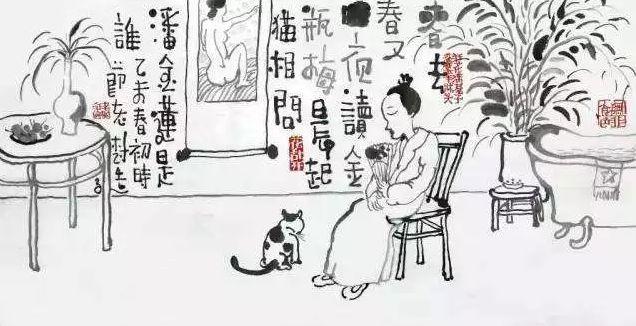 春去
春又
回夜讀金
瓶梅晨起
猫相問
潘金蓮是
誰乙未春初時
節老樹